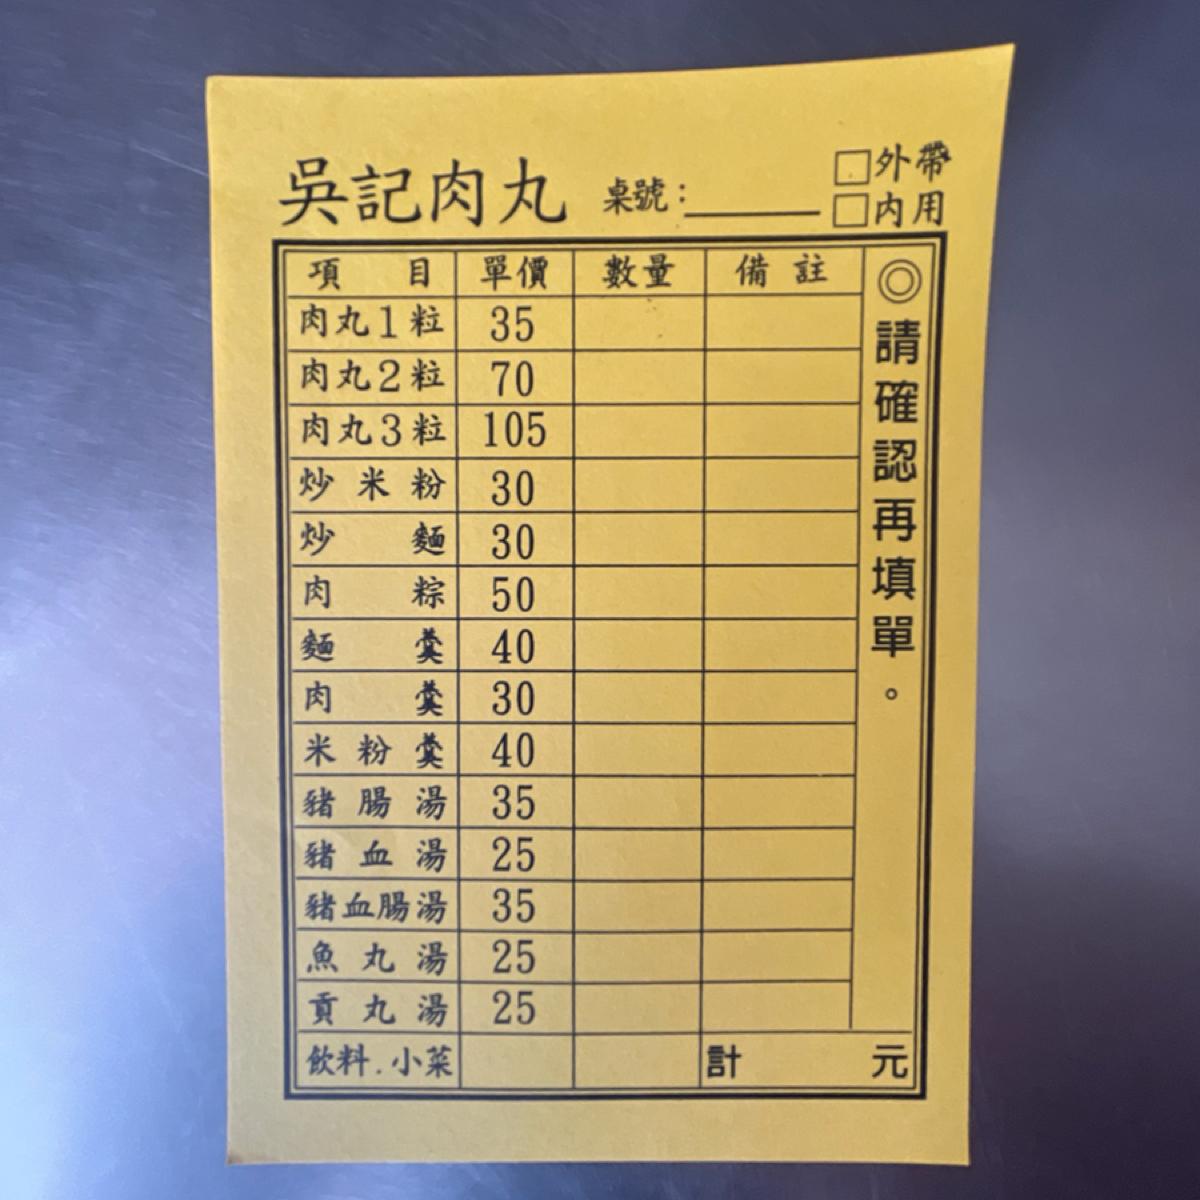 吳記肉丸 桌號：
□外帶
□內用
項目 單價 數量 備註
肉丸1粒 35
肉丸2粒 70
肉丸3粒 105
炒米粉 30
炒麵 30
肉粽 50
麵羹 40
肉羹 30
米粉羹 40
豬腸湯 35
豬血湯 25
豬血腸湯 35
魚丸湯 25
貢丸湯 25
飲料.小菜 計 元
◎請確認再填單。